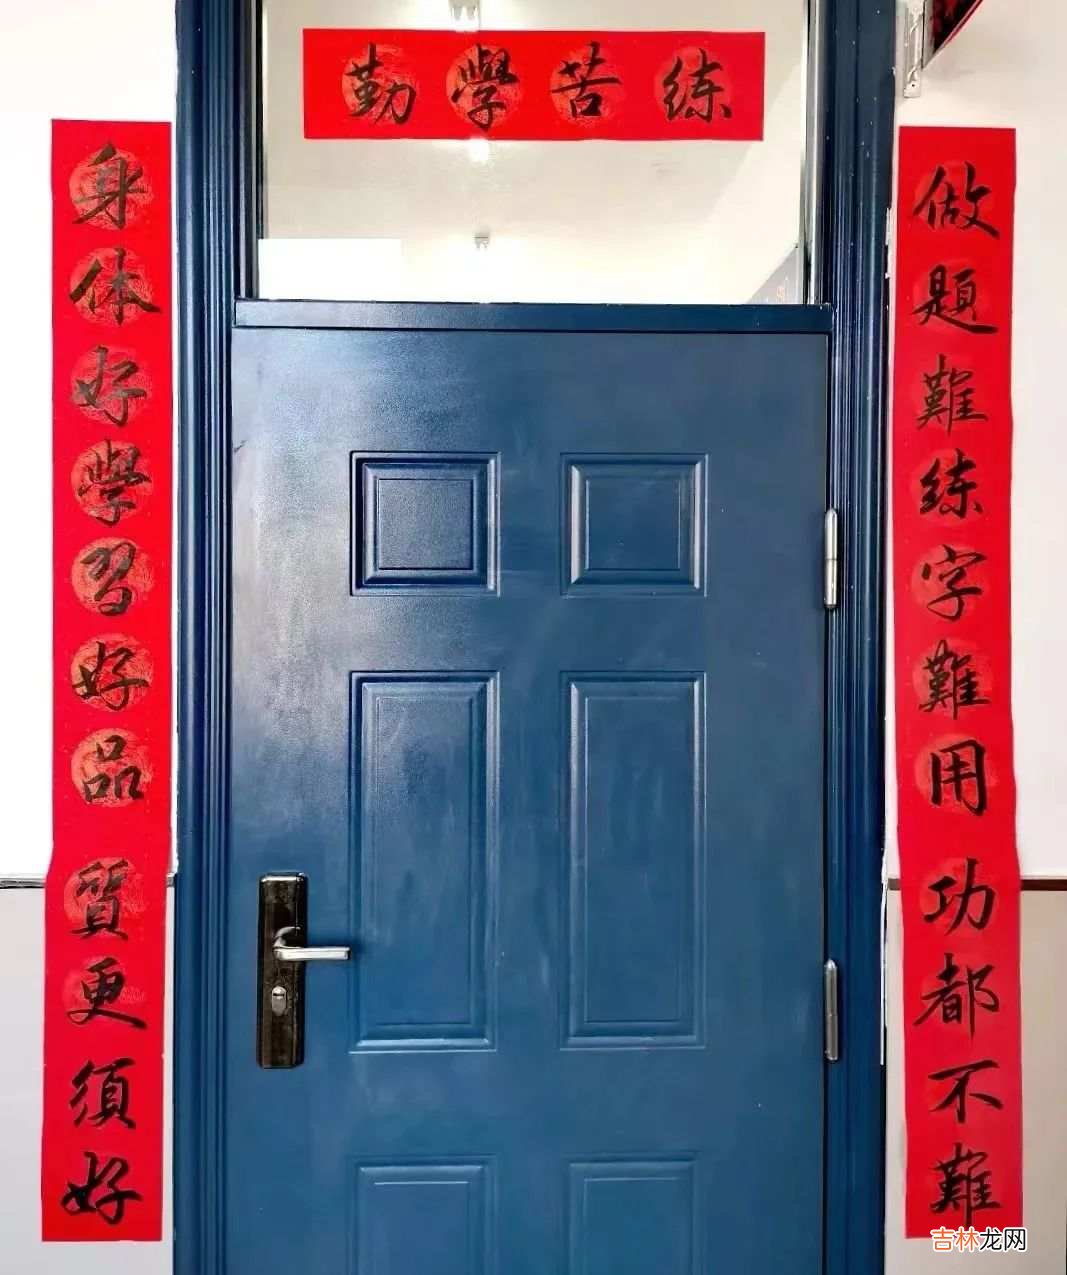 勤學苦练
做題難练字難用功都不難
身体好學習好品質更須好
吉林龙网